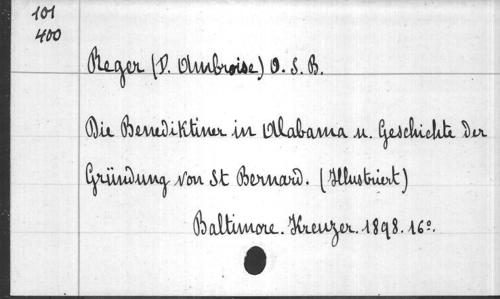 101
400
Reger (D. Ambroise) O. S. B.
Die Benediktiner in Alabama u. Geschichte der
Gründung von St Bernard. (Illustriert)
Baltimore. Kreuzer. 1898. 16º.